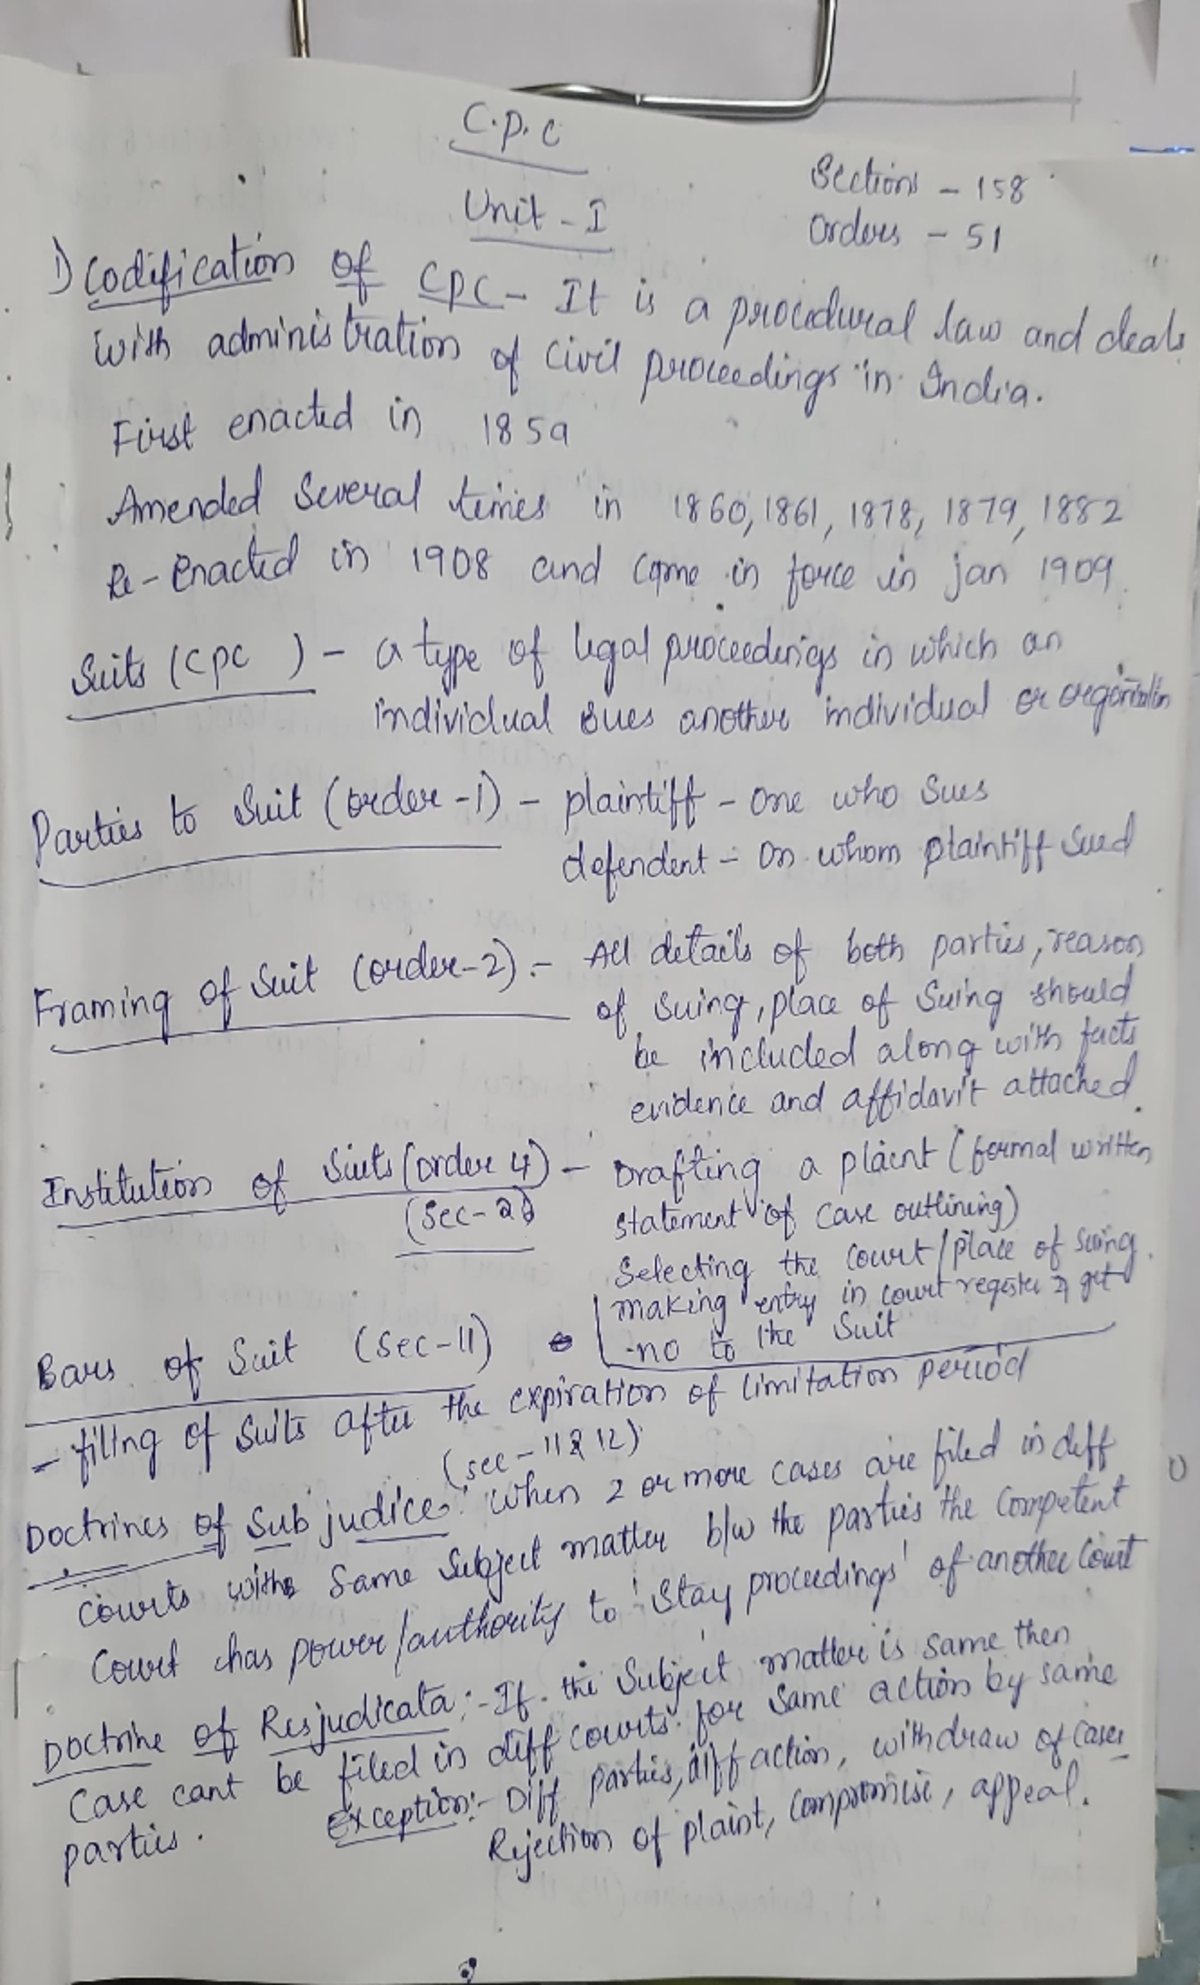 C.P.C
Unit - I
Sections - 158
Orders - 51
1) Codification of CPC - It is a procedural law and deals
with administration of civil proceedings in India.
First enacted in 1859
Amended Several times in 1860, 1861, 1878, 1879, 1882
Re-Enacted in 1908 and came in force in jan 1909
Suits (CPC ) - a type of legal proceedings in which an
individual sues another individual or organization
Parties to Suit (order-1) - plaintiff - one who sues
defendent - on whom plaintiff sued
Framing of Suit (order-2) :- All details of both parties, reason
of suing, place of Suing should
be included along with facts
evidence and affidavit attached
Institution of Suits (order 4) - Drafting a plaint (formal written
(Sec-26) statement of case outlining)
Selecting the court/place of suing.
making entry in court register & get
no to the Suit
Bars of Suit (Sec-11)
- filing of suits after the expiration of limitation period
(sec-11 & 12)
Doctrines of Sub judice: When 2 or more cases are filed in diff
courts with same subject matter b/w the parties the Competent
Court has power/authority to 'Stay proceedings' of another Court
Doctrine of Resjudicata :- If the Subject matter is same then
Case cant be filed in diff courts for same action by same
parties. Exception:- Diff parties, diff action, withdraw of cases
Rejection of plaint, Compromise, appeal.